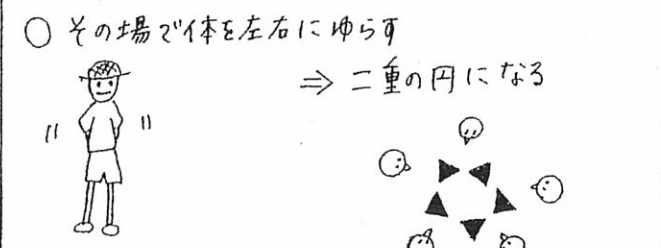 ○ その場で体を左右にゆらす
⇒ 二重の円になる